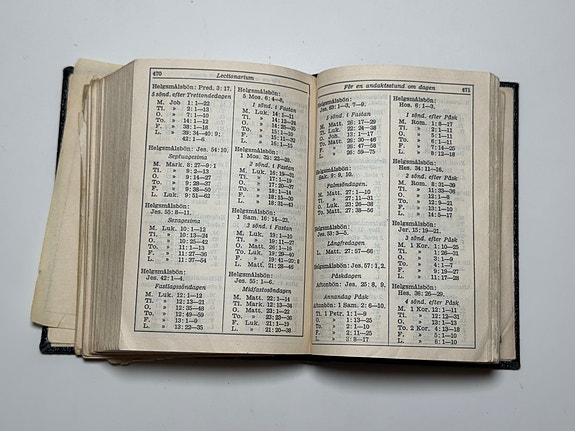 470
Lectionarium
Helgsmålsbön: Pred. 3: 17.
5 sönd. efter Trettondedagen
M. Job 1: 1—22
Ti. » 2: 1—13
O. » 7: 1—10
To. » 14: 1—12
F. » 38: 1—18
L. » 39: 34—40: 9;
42: 1—6
Helgsmålsbön: Jes. 54: 10.
Septuagesima
M. Mark. 8: 27—9: 1
Ti. » 9: 2—13
O. » 9: 14—27
To. » 9: 28—37
F. » 9: 38—50
L. Luk. 9: 51—62
Helgsmålsbön:
Jes. 55: 8—11.
Sexagesima
M. Luk. 10: 1—12
Ti. » 10: 13—24
O. » 10: 25—42
To. » 11: 1—13
F. » 11: 27—36
L. » 11: 37—54
Helgsmålsbön:
Jes. 42: 1—4.
Fastlagssöndagen
M. Luk. 12: 1—12
Ti. » 12: 13—21
O. » 12: 35—48
To. » 12: 49—59
F. » 13: 1—9
L. » 13: 22—35
Helgsmålsbön:
5 Mos. 6: 4—8.
1 sönd. i Fastan
M. Luk. 14: 1—11
Ti. » 14: 12—24
O. » 14: 25—35
To. » 15: 1—10
F. » 15: 11—32
L. » 16: 1—15
Helgsmålsbön:
1 Mos. 32: 22—29.
2 sönd. i Fastan
M. Luk. 16: 19—31
Ti. » 17: 1—19
O. » 17: 20—37
To. » 18: 1—14
F. » 18: 15—30
L. » 18: 31—43
Helgsmålsbön:
1 Sam. 16: 14—23.
3 sönd. i Fastan
M. Luk. 19: 1—10
Ti. » 19: 11—27
O. Matt. 20: 1—16
To. Luk. 19: 29—40
F. » 19: 41—20: 8
L. Matt. 21: 28—46
Helgsmålsbön:
Jes. 55: 1—6.
Midfastosöndagen
M. Matt. 22: 1—14
Ti. Mark. 12: 13—34
O. Matt. 23: 1—22
To. » 23: 23—39
F. Luk. 21: 1—19
L. » 21: 20—38
För en andaktsstund om dagen
471
Helgsmålsbön:
Jes. 63: 1—3, 7—9.
5 sönd. i Fastan
M. Matt. 26: 17—29
Ti. Luk. 22: 24—38
O. Joh. 13: 1—17
To. Matt. 26: 30—46
F. » 26: 47—58
L. » 26: 59—75
Helgsmålsbön:
Sak. 9: 9, 10.
Palmsöndagen.
M. Matt. 27: 1—10
Ti. » 27: 11—31
O. Luk. 23: 26—38
To. Matt. 27: 38—56
Helgsmålsbön:
Jes. 53: 3—5.
Långfredagen
L. Matt. 27: 57—66
Helgsmålsbön: Jes. 57: 1, 2.
Påskdagen
Aftonbön: Jes. 25: 8, 9.
Annandag Påsk
Aftonbön: 1 Sam. 2: 6—10.
Ti. 1 Petr. 1: 1—9
O. » 1: 13—25
To. » 2: 1—10
F. » 2: 11—25
L. » 3: 8—17
Helgsmålsbön:
Hos. 6: 1—3.
1 sönd. efter Påsk
M. Rom. 1: 8—17
Ti. » 2: 1—11
O. » 5: 1—11
To. » 6: 1—11
F. » 7: 14—25
L. » 8: 12—18
Helgsmålsbön:
Hes. 34: 11—16.
2 sönd. efter Påsk
M. Rom. 8: 31—39
Ti. » 11: 33—36
O. » 12: 1—8
To. »
F. »
L. » 14: 5—17
Helgsmålsbön:
Jer. 15: 19—21.
3 sönd. efter Påsk
M. 1 Kor. 1: 10—25
Ti. » 1: 26—31
O. »
To. »
F. » 9: 19—27
L. »
Helgsmålsbön:
Hes. 36: 26—29.
4 sönd. efter Påsk
M. 1 Kor. 12: 1—11
Ti. » 12: 12—31
O. » 13: 1—13
To. 2 Kor. 4: 13—18
F. » 5: 1—10
L. » 6: 1—10